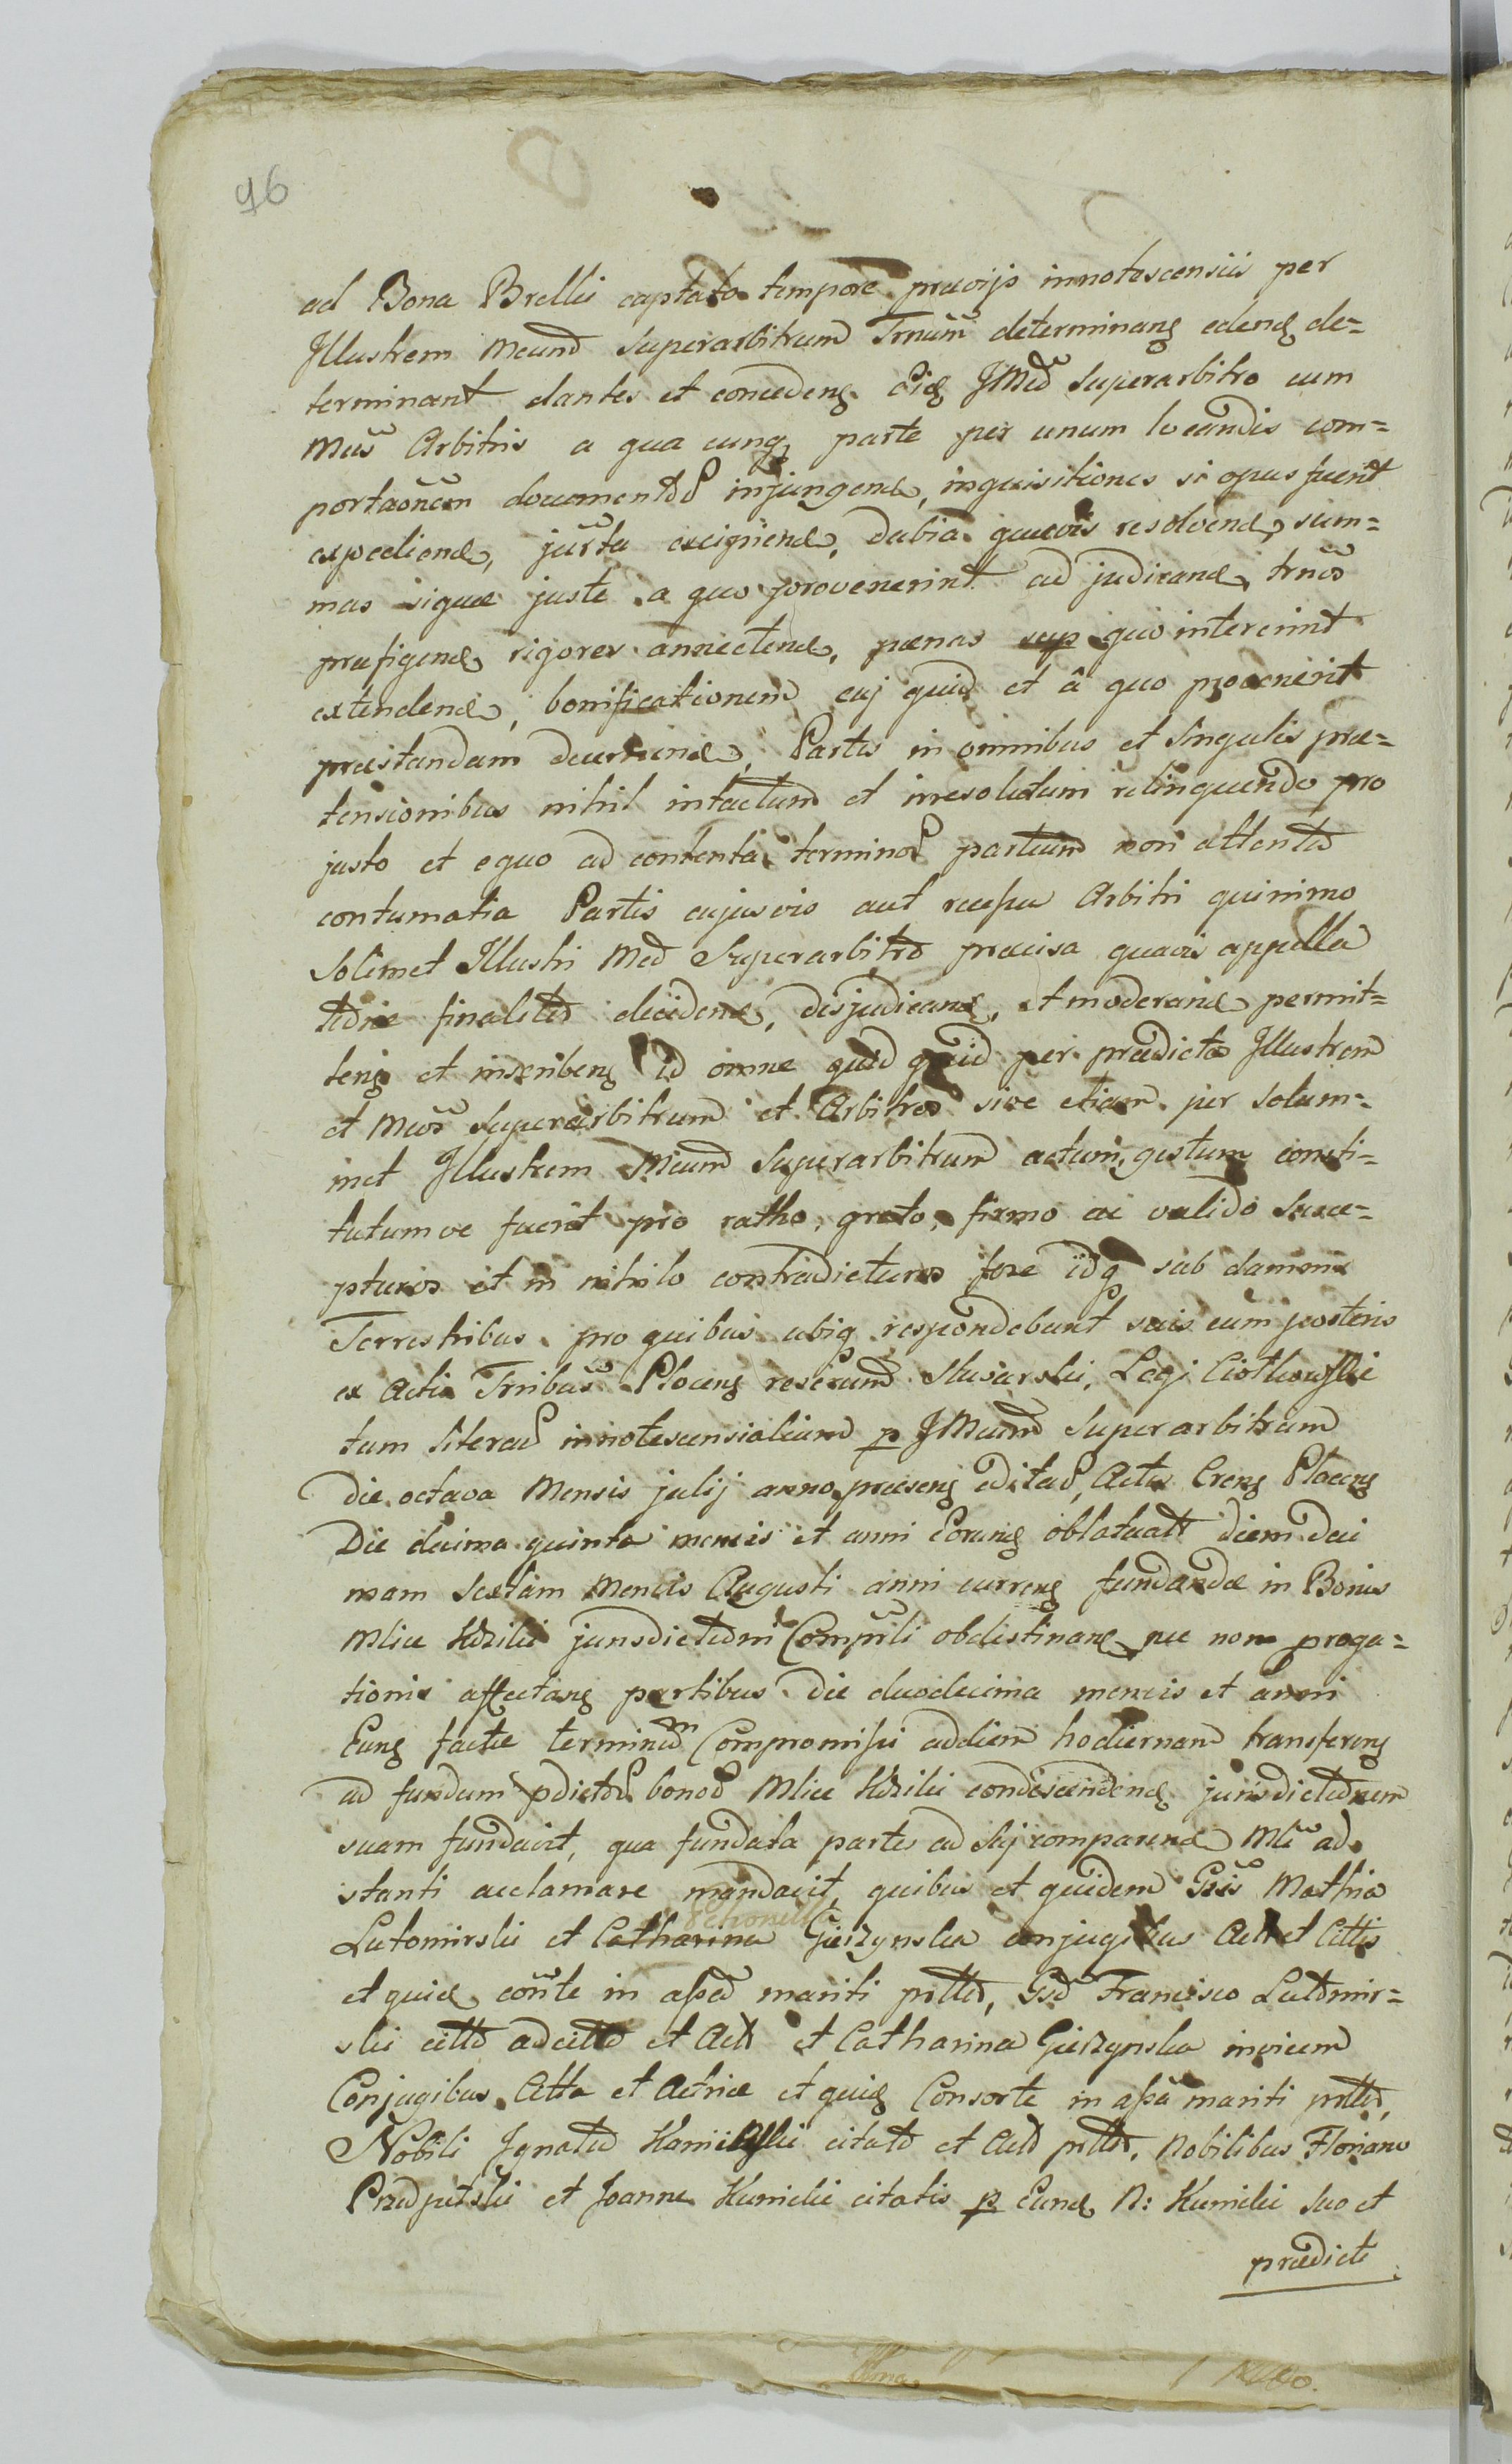 96
ad Bona Brelki captato tempore prævijs innotescensiis per
Illustrem Mcum Superarbitrum Trnum determinans edend de=
terminant dantes et conceden. Eid JMco Superarbitro cum
Mcis Arbitris a qua cunq parte per unum locandis com=
portaonem documentor injungend, inquisitiones si opus fuerit
expediend, jurta excipiend, dubia quævis resolvend, sum=
mas siquæ juste a quo provenerint ad judicand, trnos
præfigend rigores annectend, pænas quo intererint
extendend, bonificationem cuj quid et â quo provenerit
præstandam decernend, Partes in omnibus et singulis præ=
tensionibus nihil intactum et irresolutum relinquendo pro
justo et equo ad contenta terminor partium non attenta
contumatia Partis cujusvis aut recessu Arbitri quinimo
Solimet Illustri Mco Superarbitro præcisa quavis appella
tione finaliter decidend, disjudicand, et moderand permit=
ten et inscriben id omne quid quid per prædictos Illustrem
et Mcos Superarbitrum et Arbitros sive etiam per Solum=
met Illustrem Mcum Superarbitrum actum, gestum consti=
tutumve fuerit pro ratho, grato, firmo ac valido susce=
pturos et in nihilo contradicturos fore idq sub damnis
Terrestribus pro quibus ubiq respondebunt suis cum posteris
ex Actis Plocen
tum literar innotescensialium p JMcum Superarbitrum
Die octava Mensis julij anno præsen editar, Actis Cren Plocen
Die decima quinta mensis et anni Eorund oblatuatt diem deci
mam Sextam Mensis Augusti anni curren fundandæ in Bonis
Mlice Kdzilki jurisdictioni Compmli obdestinand nec non proga=
tionis affectans partibus Die duodecima mensis et anni
Eund factæ terminum Compromissi ad diem hodiernam transferens
ad fundum pdictor bonor Mlice Kdzilki condescendend jurisdictionem
suam fundavit, qua fundata partes ad Sej comparend Mli ad
stanti acclamare mandavit, quibus et quidem Gsis Mathia
Petronella
Lutomirski et Catharina Gieszynska conjugibus Act et Cittis
et quid conte in assa mariti prtte, Gso Francisco Lutomir=
ski citto adcitto et Act et Catharina Gieszynska invicem
Conjugibus Citta et Actrice et quid Consorte in assa mariti prtte,
Nobili Ignatio citato et Act prtte, Nobilibus Floriano
Przedpelski et Joanne Kumicki citatis p Eund N: Kumicki suo et
prædicte